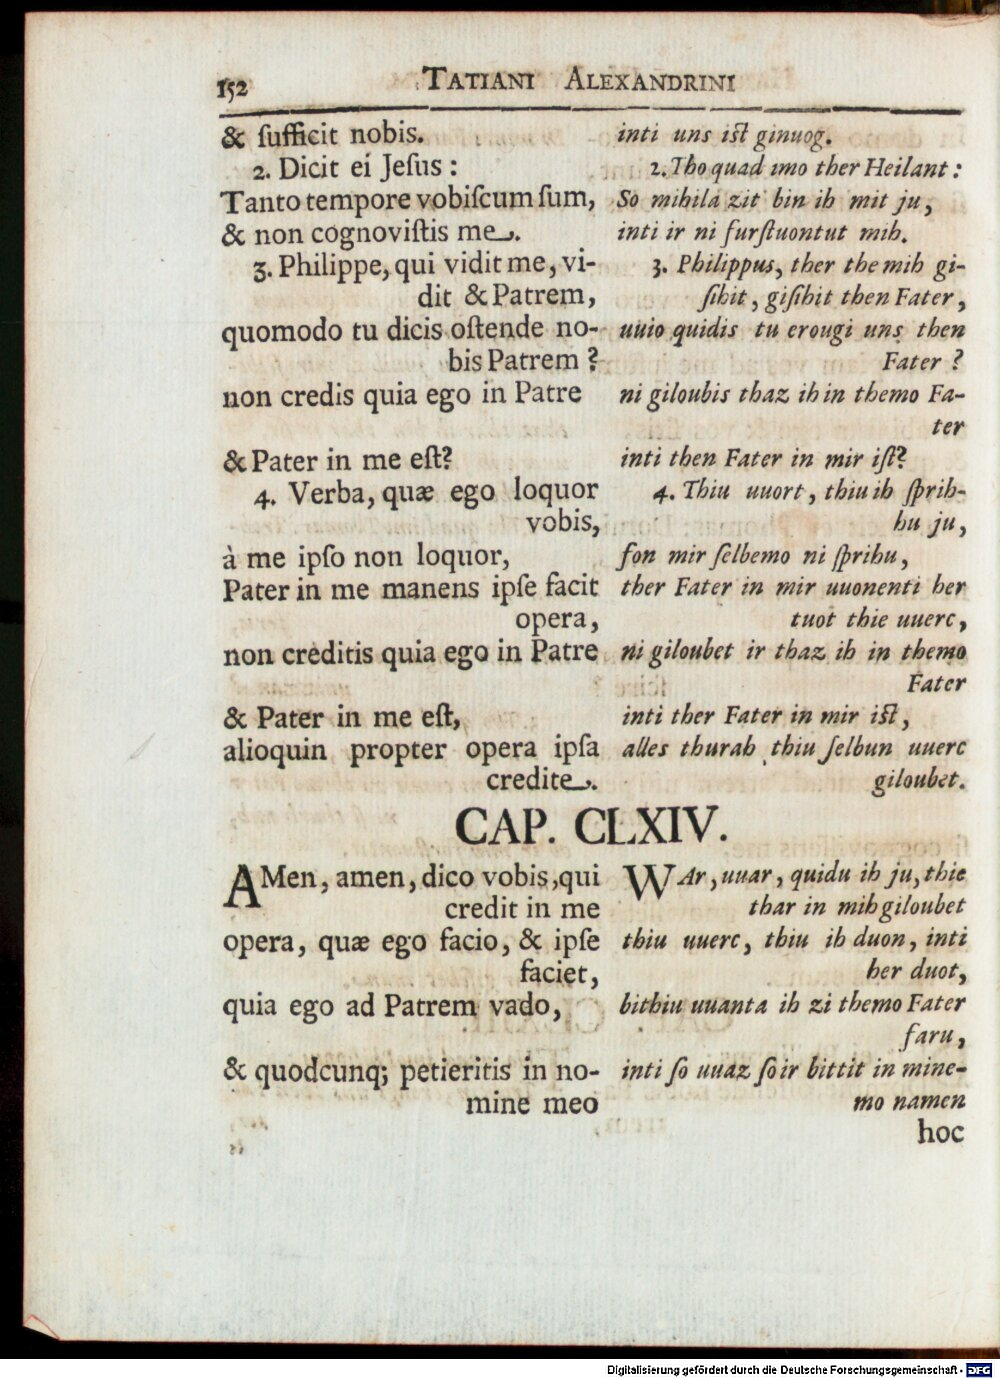 152 TATIANI ALEXANDRINI
& ſufficit nobis.
2. Dicit ei Jeſus :
Tanto tempore vobiſcum ſum,
& non cognoviſtis me.
3. Philippe, qui vidit me, vi-
dit & Patrem,
quomodo tu dicis oſtende no-
bis Patrem ?
non credis quia ego in Patre
& Pater in me eſt?
4. Verba, quæ ego loquor
vobis,
à me ipſo non loquor,
Pater in me manens ipſe facit
opera,
non creditis quia ego in Patre
& Pater in me eſt,
alioquin propter opera ipſa
credite.
inti uns iſt ginuog.
2. Tho quad imo ther Heilant :
So mihila zit bin ih mit ju,
inti ir ni furſtuontut mih.
3. Philippus, ther the mih gi-
ſihit, giſihit then Fater,
uuio quidis tu erougi uns then
Fater ?
ni giloubis thaz ih in themo Fa-
ter
inti then Fater in mir iſt?
4. Thiu uuort, thiu ih ſprih-
hu ju,
fon mir ſelbemo ni ſprihu,
ther Fater in mir uuonenti her
tuot thie uuerc,
ni giloubet ir thaz ih in themo
Fater
inti ther Fater in mir iſt,
alles thurah thiu ſelbun uuerc
giloubet.
CAP. CLXIV.
AMen, amen, dico vobis, qui
credit in me
opera, quæ ego facio, & ipſe
faciet,
quia ego ad Patrem vado,
& quodcunq; petieritis in no-
mine meo
WAr, uuar, quidu ih ju, thie
thar in mih giloubet
thiu uuerc, thiu ih duon, inti
her duot,
bithiu uuanta ih zi themo Fater
faru,
inti ſo uuaz ſo ir bittit in mine-
mo namen
hoc
Digitalisierung gefördert durch die Deutsche Forschungsgemeinschaft - DFG